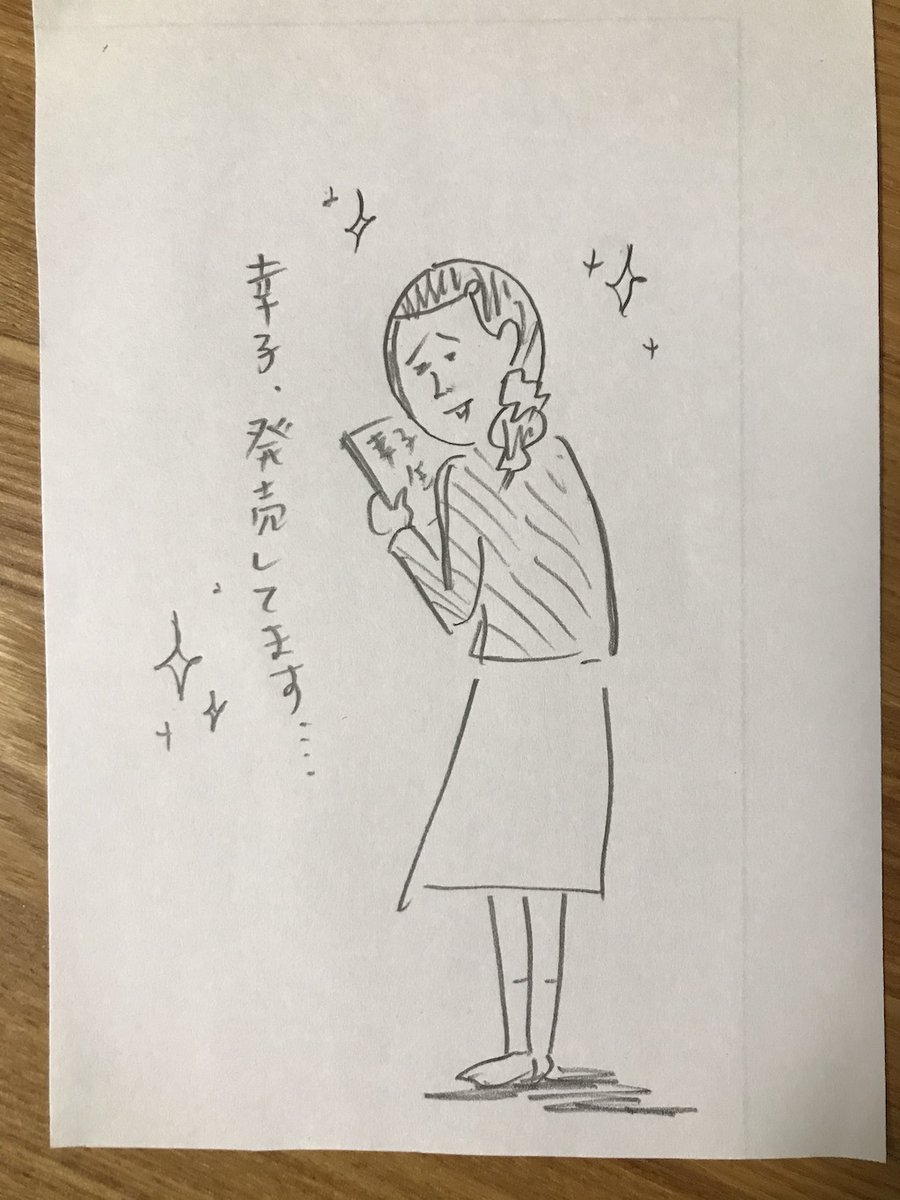 幸子、発売してます….
幸子